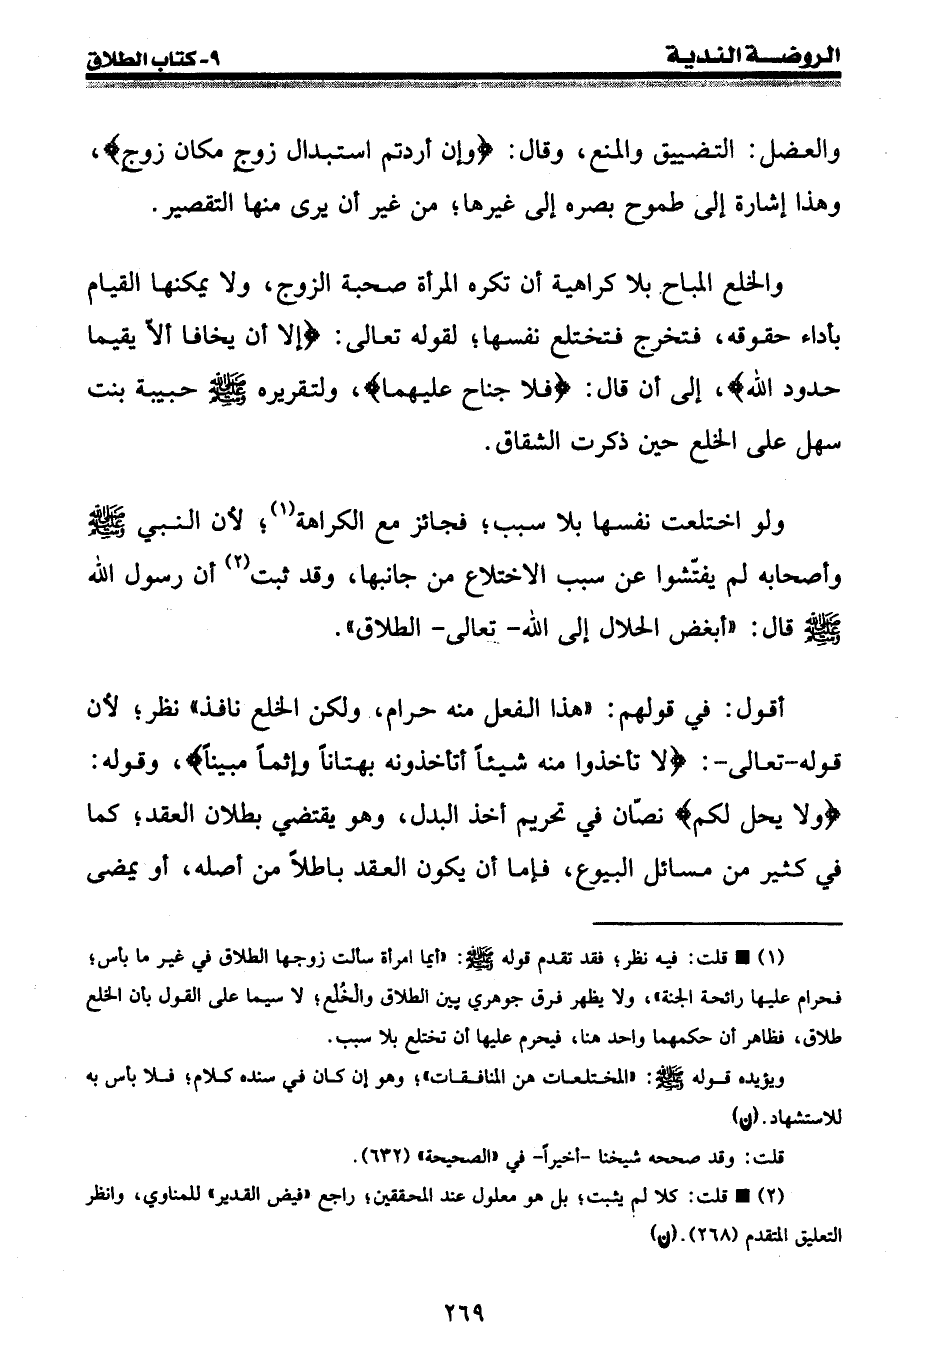 الروضـــة الندية
٩- كتاب الطلاق
والعضل: التضييق والمنع، وقال: ﴿وإن أردتم استبدال زوج مكان زوج﴾،
وهذا إشارة إلى طموح بصره إلى غيرها؛ من غير أن يرى منها التقصير.
والخلع المباح بلا كراهية أن تكره المرأة صحبة الزوج، ولا يمكنها القيام
بأداء حقوقه، فتخرج فتختلع نفسها؛ لقوله تعالى: ﴿إلا أن يخافا ألاّ يقيما
حدود الله﴾، إلى أن قال: ﴿فلا جناح عليهما﴾، ولتقريره ﷺ حبيبة بنت
سهل على الخلع حين ذكرت الشقاق.
ولو اختلعت نفسها بلا سبب؛ فجائز مع الكراهة(١)؛ لأن النبي ﷺ
وأصحابه لم يفتّشوا عن سبب الاختلاع من جانبها، وقد ثبت(٢) أن رسول الله
ﷺ قال: «أبغض الحلال إلى الله- تعالى- الطلاق».
أقول: في قولهم: «هذا الفعل منه حرام، ولكن الخلع نافذ» نظر؛ لأن
قوله-تعالى-: ﴿لا تأخذوا منه شيئاً أتأخذونه بهتاناً وإثماً مبيناً﴾، وقوله:
﴿ولا يحل لكم﴾ نصّان في تحريم أخذ البدل، وهو يقتضي بطلان العقد؛ كما
في كثير من مسائل البيوع، فإما أن يكون العقد باطلاً من أصله، أو يمضى
(١) ■ قلت: فيه نظر؛ فقد تقدم قوله ﷺ: «أيما امرأة سألت زوجها الطلاق في غير ما بأس؛
فحرام عليها رائحة الجنة»، ولا يظهر فرق جوهري بين الطلاق والخُلع؛ لا سيما على القول بأن الخلع
طلاق، فظاهر أن حكمهما واحد هنا، فيحرم عليها أن تختلع بلا سبب.
ويؤيده قوله ﷺ: «المختلعات هن المنافقات»؛ وهو إن كان في سنده كلام؛ فلا بأس به
للاستشهاد.(ن)
قلت: وقد صححه شيخنا -أخيراً- في «الصحيحة» (٦٣٢).
(٢) ■ قلت: كلا لم يثبت؛ بل هو معلول عند المحققين؛ راجع «فيض القدير» للمناوي، وانظر
التعليق المتقدم (٢٦٨).(ن)
٢٦٩